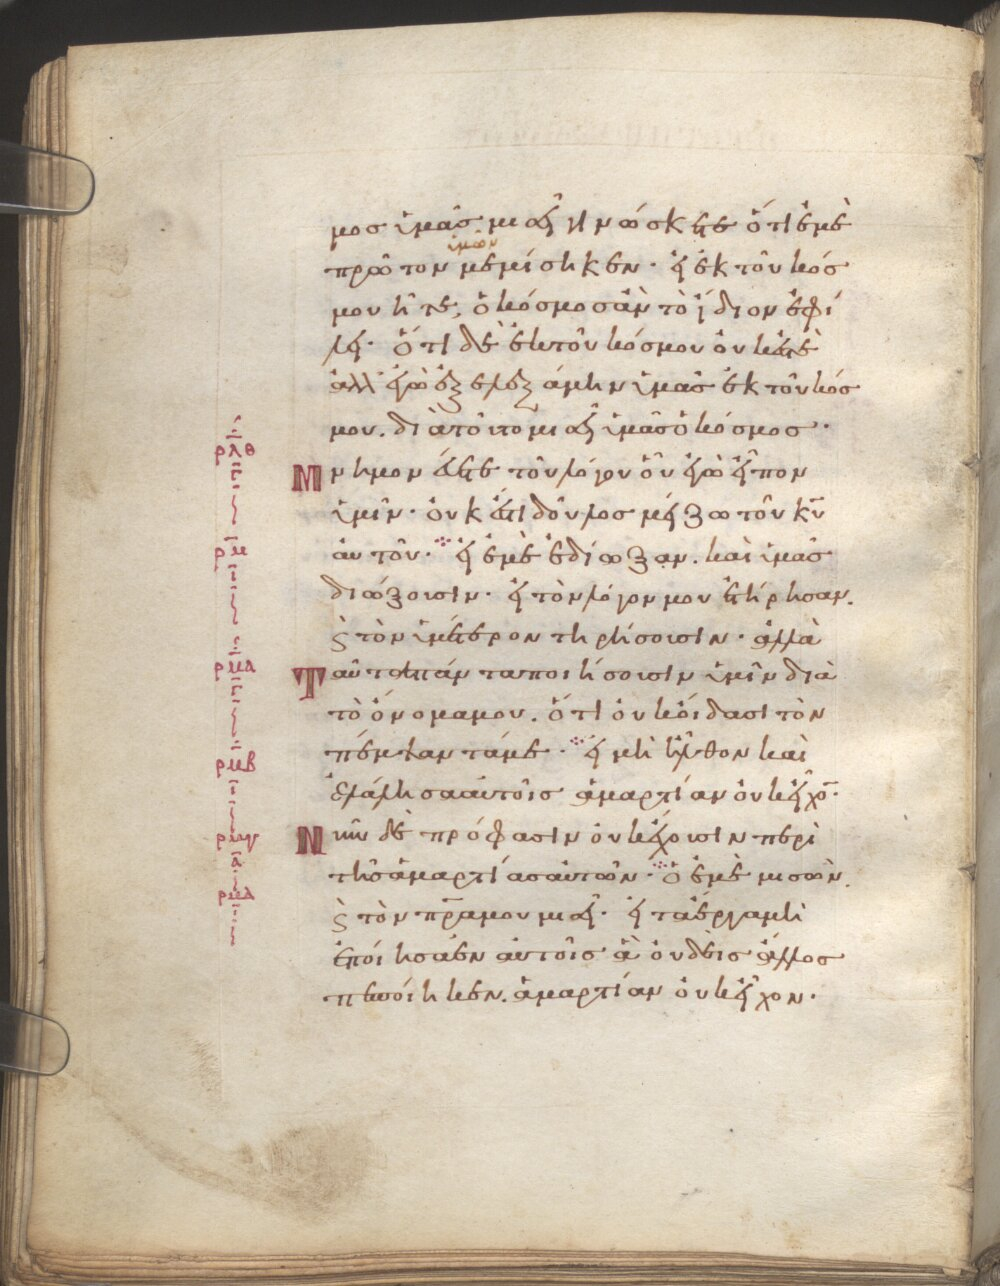 μος ὑμᾶς μισεῖ γινώσκετε ὅτι ἐμὲ
ὑμῶν
πρῶτον μεμίσηκεν· εἰ ἐκ τοῦ κόσ
μου ἦτε, ὁ κόσμος ἂν τὸ ἴδιον ἐφί
λει· ὅτι δὲ ἐκ τοῦ κόσμου οὐκ ἐστὲ
ἀλλ' ἐγὼ ἐξελεξάμην ὑμᾶς ἐκ τοῦ κόσ
μου. διατοῦτο μισεῖ ὑμᾶς ὁ κόσμος·
ρλθ
Μνημονεύετε τοῦ λόγου οὗ ἐγὼ εἶπον
ὑμῖν· οὐκ ἔστι δοῦλος μείζω τοῦ κ̅υ̅
ρμ
αὐτοῦ· εἰ ἐμὲ ἐδίωξαν. καὶ ὑμᾶς
διώξουσιν· εἰ τὸν λόγον μου ἐτήρησαν.
ϛ τὸν ὑμέτερον τηρήσουσιν· ἀλλὰ
ρμα
Ταῦτα πάντα ποιήσουσιν ὑμῖν διὰ
τὸ ὄνομα μου. ὅτι οὐκ οἴδασι τὸν
πέμψαντά με· εἰ μὴ ἦλθον καὶ
ρμβ
ἐλάλησα αὐτοῖς ἁμαρτίαν οὐκ εἶχο̅·
ρμγ
Νῦν δὲ πρόφασιν οὐκ ἔχουσιν περὶ
τῆς ἁμαρτίας αὐτῶν· ὁ ἐμὲ μισῶν.
ρμδ
ϛ τὸν π̅ρ̅α μου μισεῖ· εἰ τὰ ἔργα μὴ
ἐποίησα ἐν αὐτοῖς ἃ οὐδεὶς ἄλλος
πεποίηκεν. ἁμαρτίαν οὐκ εἶχον·